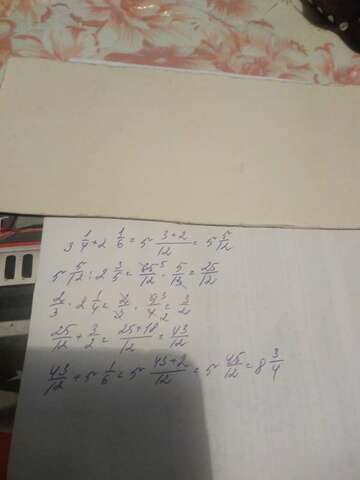 3 1/4 + 2 1/6 = 5 3+2/12 = 5 5/12
5 5/12 : 2 3/5 = 65 5/12 · 5/13 = 25/12
2/3 · 2 1/4 = 2/3 · 9 3/4 2 = 3/2
25/12 + 3/2 = 25+18/12 = 43/12
43/12 + 5 1/6 = 5 43+2/12 = 5 45/12 = 8 3/4